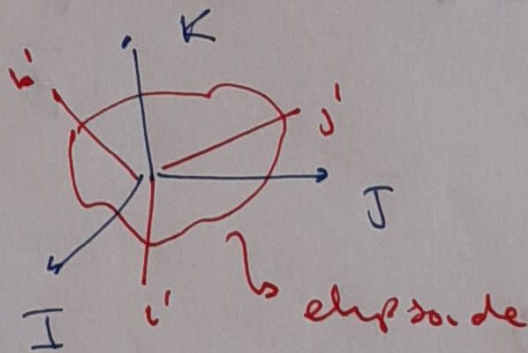 K
k'
j'
J
I
i'
elipsoide